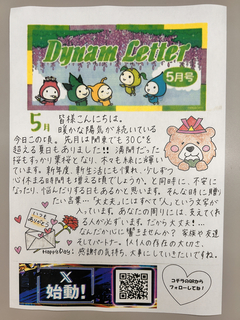 Dynam Letter
5月号
5月
皆様こんにちは。
暖かな陽気が続いている
今日この頃。先月は関東でも30℃を
超える夏日もありました!! 満開だった
桜もすっかり葉桜となり、木々も未来に輝い
ています。新年度、新生活にも慣れ、少しずつ
いそしまる時間も増える頃でしょうか。と同時に、不安に
なったり、悩んだりする日もあるかと思います。そんな時に贈り
たい言葉…「大丈夫」にはすべて「人」という文字が
入っています。あなたの周りには、支えてくれ
る人が必ずいます。だから大丈夫!…
なんだか心に響きませんか? 家族や友達
そしてパートナー。1人1人の存在の大切さ、
感謝の気持ち、大事にしていきたいですね。
いつも
ありがとう
Happy Day!
X
始動!
コチラのQRから
フォローしてね!